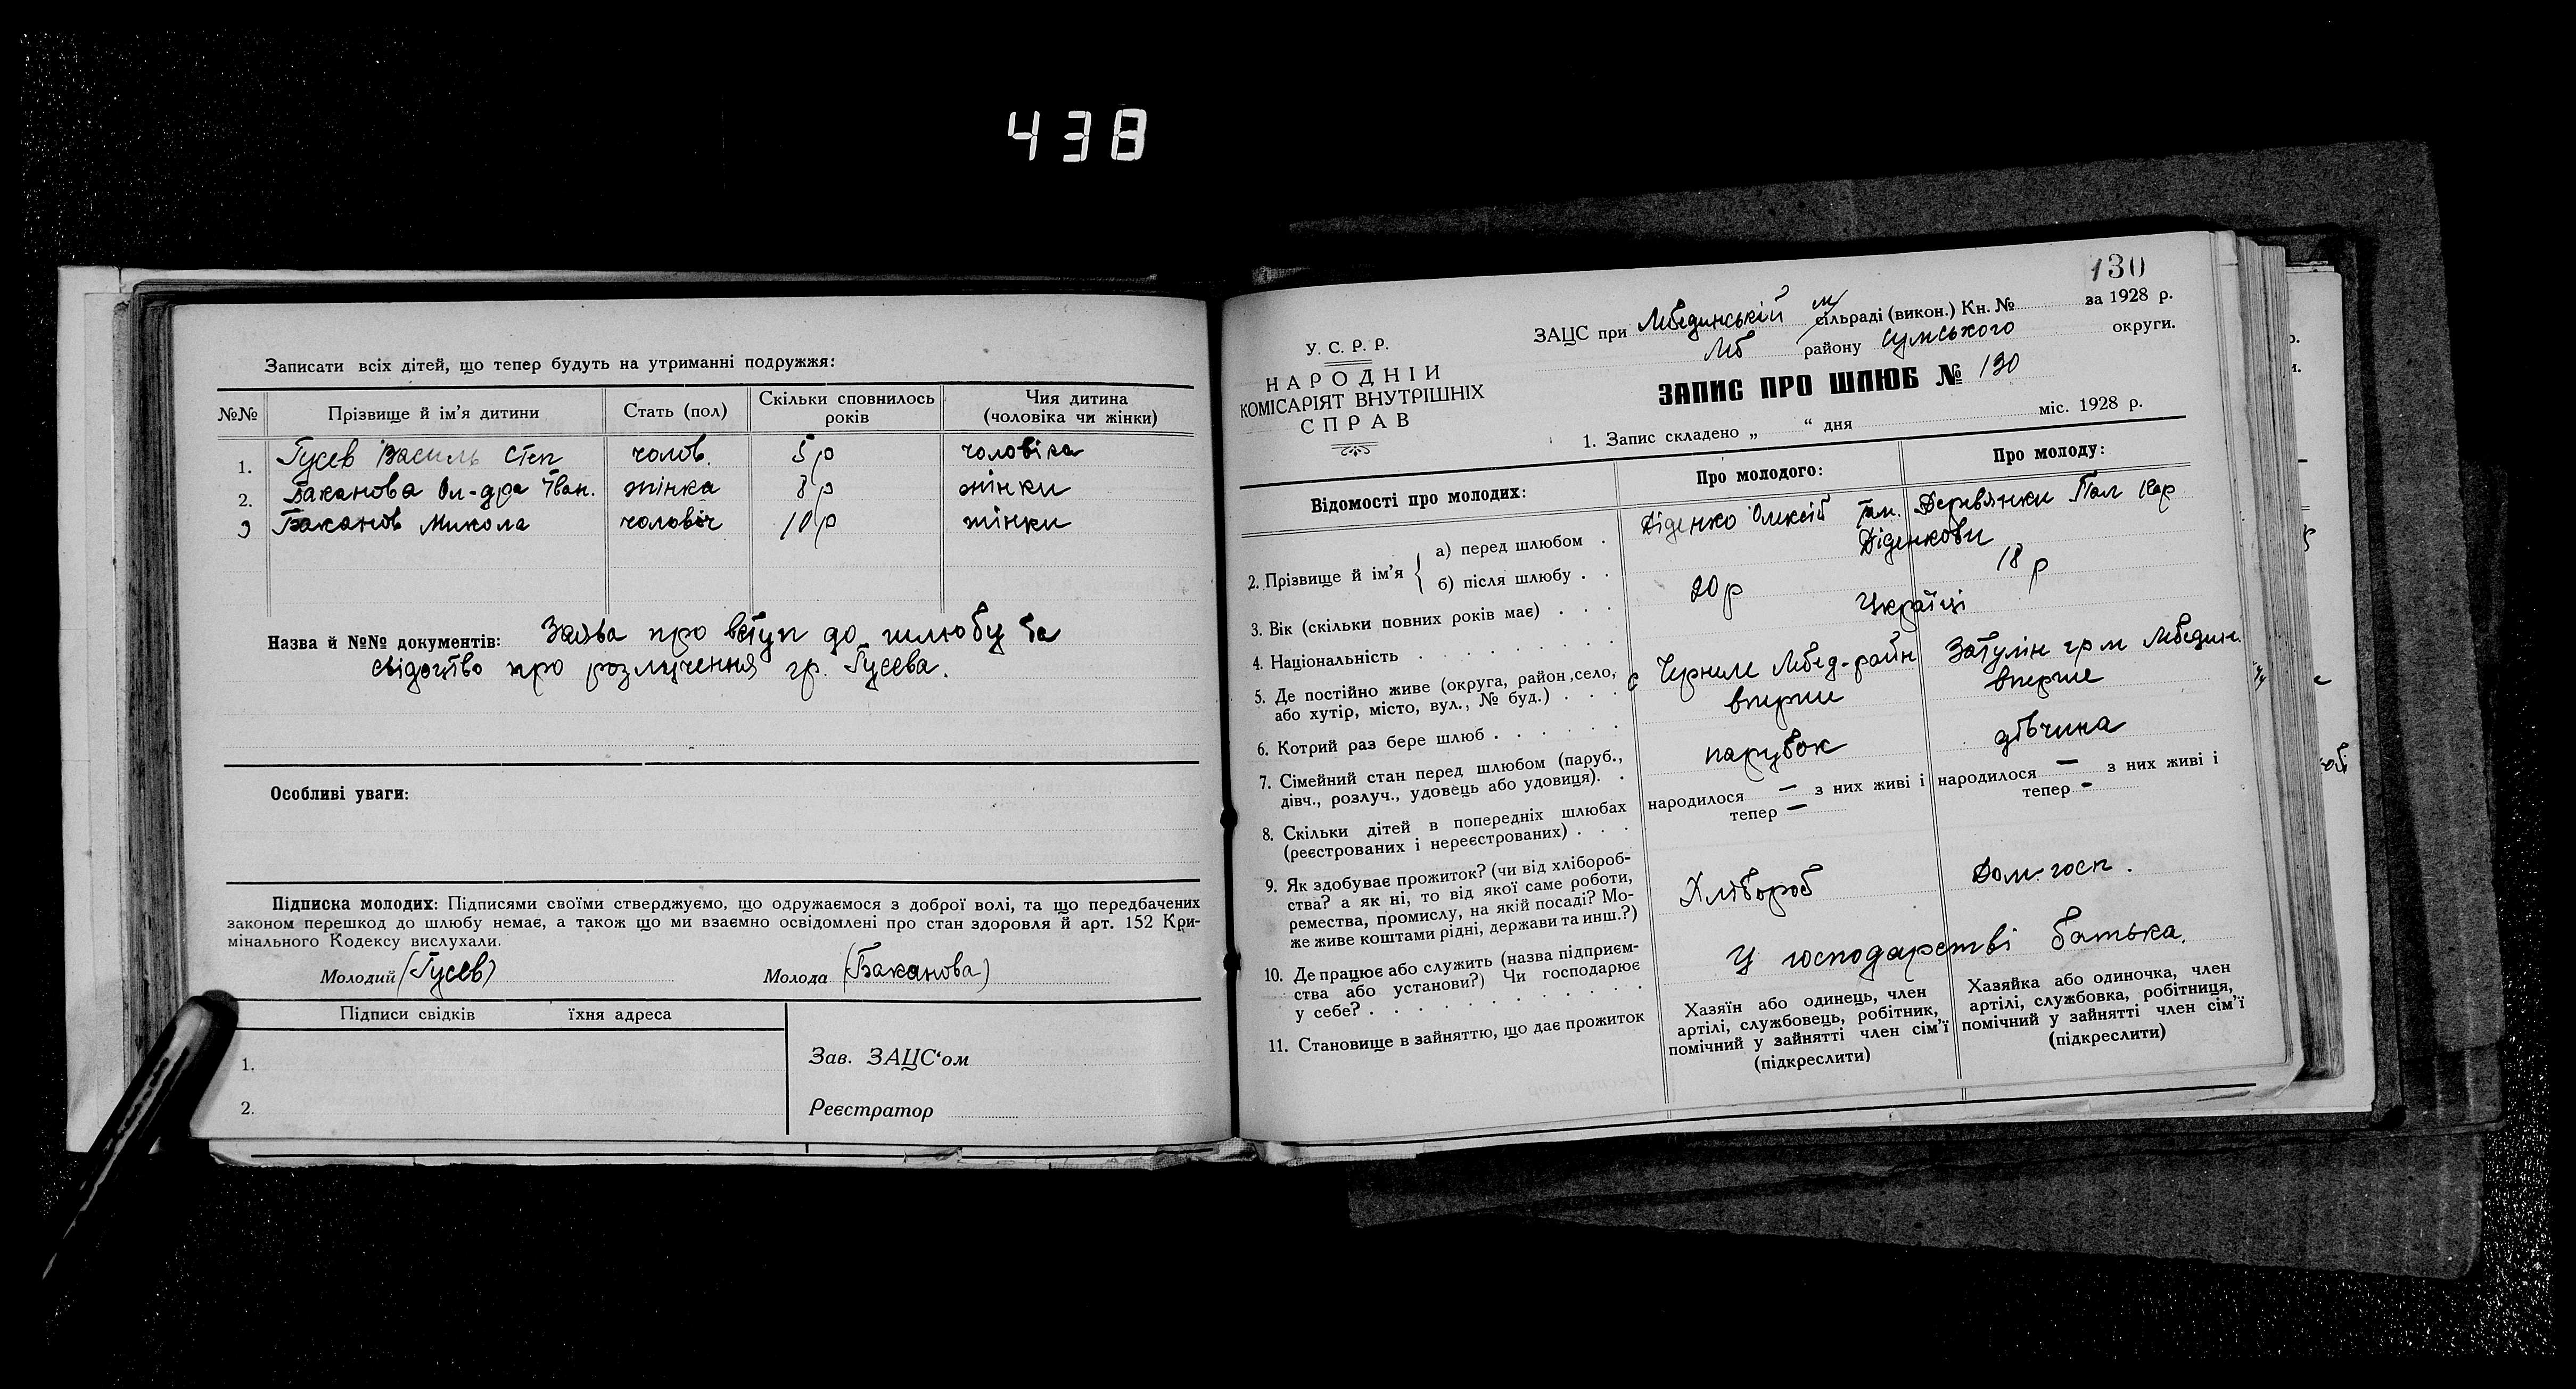 438
Записати всіх дітей, що тепер будуть на утриманні подружжя:
№№ Прізвище й ім'я дитини Стать (пол) Скільки сповнилось років Чия дитина (чоловіка чи жінки)
1. Гусев Василь Степ чолов. 5 р чоловіка
2. Баканова Ол-дра Іван. жінка 8 р жінки
3 Баканов Микола чоловіч 10 р жінки
Назва й №№ документів: Заява про вступ до шлюбу та
свідоцтво про розлучення гр. Гусева.
Особливі уваги:
Підписка молодих: Підписями своїми стверджуємо, що одружаємося з доброї волі, та що передбачених
законом перешкод до шлюбу немає, а також що ми взаємно освідомлені про стан здоровля й арт. 152 Кри-
мінального Кодексу вислухали.
Молодий (Гусев) Молода (Баканова)
Підписи свідків їхня адреса
1.
2.
Зав. ЗАЦС'ом
Реєстратор
130
У. С. Р. Р.
НАРОДНІЙ
КОМІСАРІЯТ ВНУТРІШНІХ
СПРАВ
ЗАЦС при Лебединській м сільраді (викон.) Кн. № за 1928 р.
Лб району Сумського округи.
ЗАПИС ПРО ШЛЮБ № 130
1. Запис складено „ “ дня міс. 1928 р.
Відомості про молодих: Про молодого: Про молоду:
2. Прізвище й ім'я { а) перед шлюбом . Діденко Олексій Дерв'янки Пал
б) після шлюбу . . Діденкови
3. Вік (скільки повних років має) . . . 20 р 18 р
4. Національність Українці
5. Де постійно живе (округа, район, село,
або хутір, місто, вул., № буд.) . . . с Черниле Лебед-райн Затулін гр м Лебедин
6. Котрий раз бере шлюб . . . . . . вперше вперше
7. Сімейний стан перед шлюбом (паруб.,
дівч., розлуч., удовець або удовиця). . парубок дівчина
8. Скільки дітей в попередніх шлюбах
(реєстрованих і нереєстрованих) . . . народилося — з них живі і тепер — народилося — з них живі і тепер -
9. Як здобуває прожиток? (чи від хлібороб-
ства? а як ні, то від якої саме роботи,
ремества, промислу, на якій посаді? Мо-
же живе коштами рідні, держави та инш.?) Хлібороб Дом. госп.
10. Де працює або служить (назва підприєм-
ства або установи?) Чи господарює
у себе? . . . . . . . . . . У господарстві батька.
11. Становище в зайняттю, що дає прожиток
Хазяїн або одинець, член
артілі, службовець, робітник,
помічний у зайнятті член сім'ї
(підкреслити)
Хазяйка або одиночка, член
артілі, службовка, робітниця,
помічний у зайнятті член сім'ї
(підкреслити)